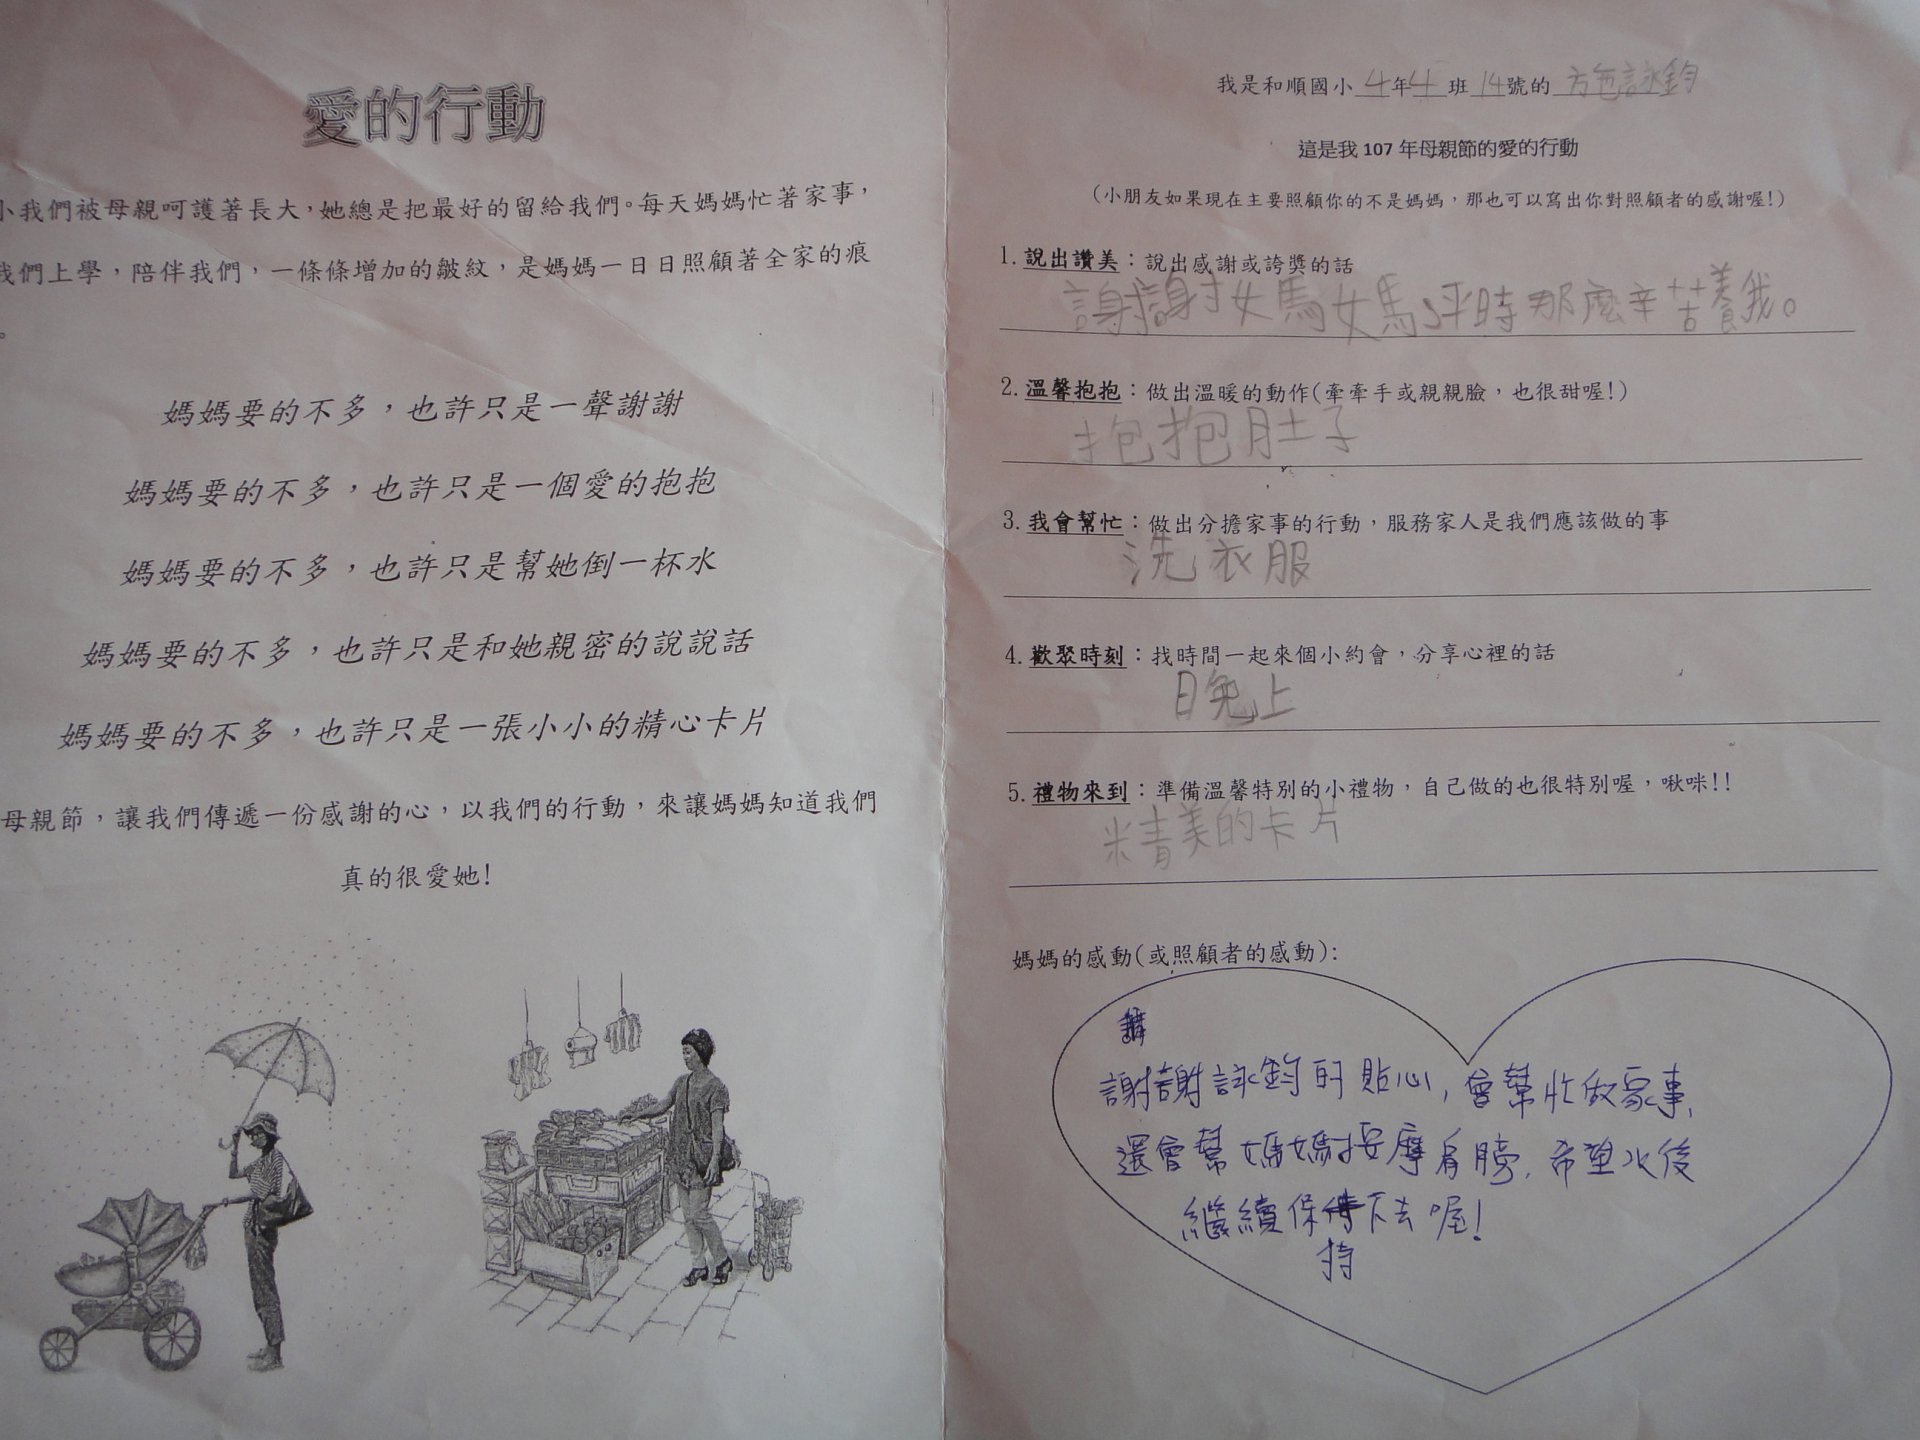 愛的行動
小我們被母親呵護著長大，她總是把最好的留給我們。每天媽媽忙著家事，
我們上學，陪伴我們，一條條增加的皺紋，是媽媽一日日照顧著全家的痕
。
媽媽要的不多，也許只是一聲謝謝
媽媽要的不多，也許只是一個愛的抱抱
媽媽要的不多，也許只是幫她倒一杯水
媽媽要的不多，也許只是和她親密的說說話
媽媽要的不多，也許只是一張小小的精心卡片
母親節，讓我們傳遞一份感謝的心，以我們的行動，來讓媽媽知道我們
真的很愛她!
我是和順國小 4年4班 14號的 方 詠鈞
這是我 107 年母親節的愛的行動
(小朋友如果現在主要照顧你的不是媽媽，那也可以寫出你對照顧者的感謝喔!)
1. 說出讚美：說出感謝或誇獎的話
謝謝媽媽平時那麼辛苦養我。
2. 溫馨抱抱：做出溫暖的動作(牽牽手或親親臉，也很甜喔!)
抱抱肚子
3. 我會幫忙：做出分擔家事的行動，服務家人是我們應該做的事
洗衣服
4. 歡聚時刻：找時間一起來個小約會，分享心裡的話
晚上
5. 禮物來到：準備溫馨特別的小禮物，自己做的也很特別喔，啾咪!!
精美的卡片
媽媽的感動(或照顧者的感動):
謝謝詠鈞的貼心，會幫忙做家事，
還會幫媽媽按摩肩膀，希望以後
繼續保持下去喔!